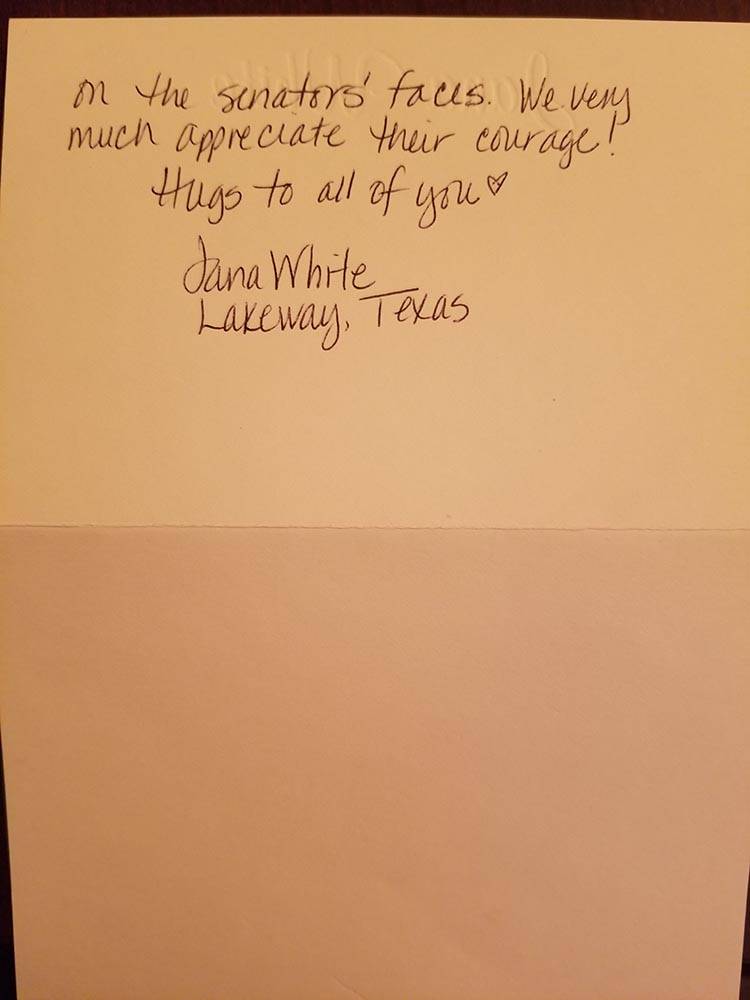 on the senators' faces. We very
much appreciate their courage!
Hugs to all of you ♡
Jana White
Lakeway, Texas